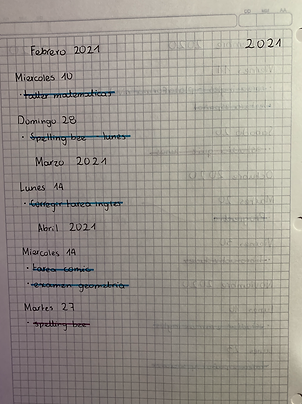 2021
Febrero 2021
Miercoles 10
· taller matematicas
Domingo 28
· Spelling bee lunes
Marzo 2021
Lunes 14
· Corregir tarea ingles
Abril 2021
Miercoles 14
· tarea comic
· examen geometria
Martes 27
· spelling bee